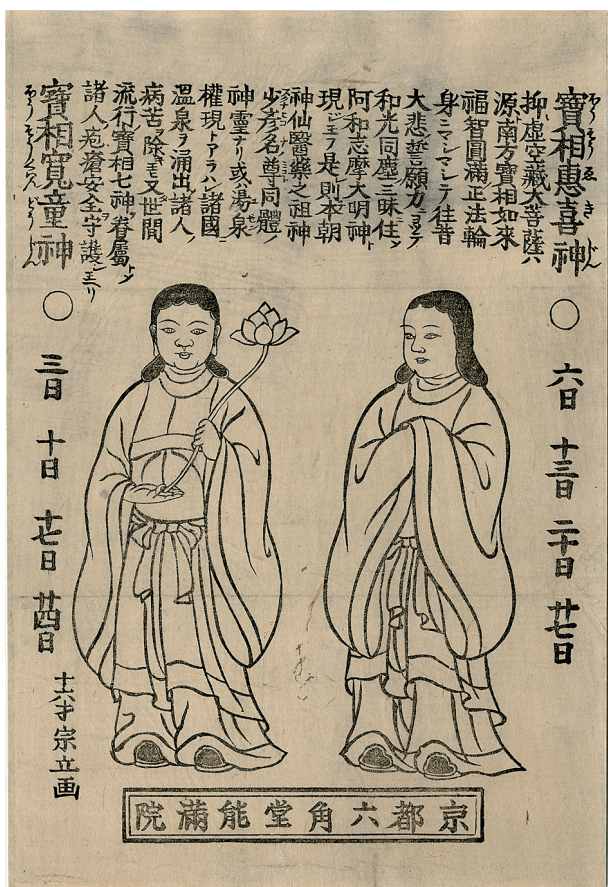 寶相惠喜神
ほうさうゑきじん
抑虚空藏大菩薩ハ
源南方寶相如來
福智圓滿正法輪
身ニマシマシテ往昔
大悲誓願力ニヨリテ
和光同塵三昧住シ
阿和志摩大明神ト
現ジ玉フ是則本朝
神仙醫藥之祖神
少彦名尊同體ノ
神靈ナリ或ハ湯泉
權現トアラハレ諸國ニ
温泉ヲ涌出シ諸人ノ
病苦ヲ除キ玉フ又世間
流行寶相七神ヲ眷屬トシ
諸人ノ疱瘡安全守護シ玉リ
寶相寬童神
ほうさうくわんどうじん
〇 六日 十三日 二十日 廿七日
〇 三日 十日 十七日 廿四日
十六才宗立画
京都六角堂能滿院